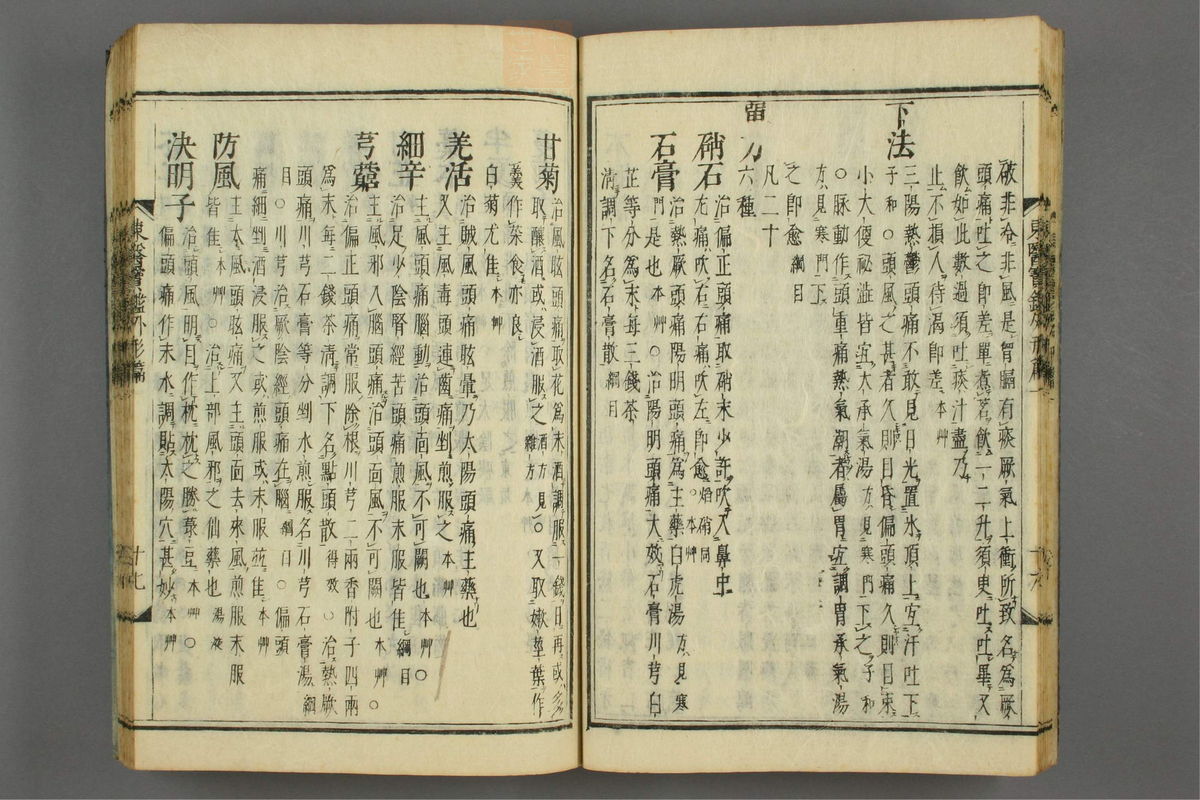 故非冷非風是胷膈有痰厥氣上衝所致名爲厥
頭痛吐之卽差單煮茗飮一二升須臾吐吐畢又
飮如此數過須吐痰汁盡乃
止不損人待渴卽差 本艸
下法
三陽熱鬱頭痛不敢見日光置氷頂上宜汗吐下
子和○頭風之甚者久則目昏偏頭痛久則目束
小大便秘澁皆宜大承氣湯方見寒門下之子和
○脉動作頭重痛熱氣潮者屬胃宜調胃承氣湯
方見寒門下
之卽愈 綱目
單方
凡二十
六種
硝石
治偏正頭痛取硝末少許吹入鼻中
左痛吹右右痛吹左卽愈 焰硝同○本艸
石膏
治熱厥頭痛陽明頭痛爲主藥白虎湯方見寒
門是也本艸○治陽明頭痛大效石膏川芎白
芷等分爲末每三錢茶
淸調下名石膏散 綱目
甘菊
治風眩頭痛取花爲末酒調服一錢日再或多
取釀酒或浸酒服之酒方見雜方○又取嫩莖葉作
羹作菜食亦良
白菊尤佳 本艸
羌活
治賊風頭痛眩暈乃太陽頭痛主藥也
又主風毒頭連齒痛剉煎服之 本艸
細辛
主風頭痛腦動治頭面風不可闕也本艸○
治足少陰腎經苦頭痛煎服末服皆佳 綱目
芎藭
主風邪入腦頭痛治頭面風不可闕也本艸○
治偏正頭痛常服除根川芎二兩香附子四兩
爲末每二錢茶淸調下名點頭散得效○治熱厥
頭痛川芎石膏等分剉水煎服名川芎石膏湯綱
目○川芎治厥陰經頭痛在腦綱目○偏頭
痛細剉酒浸服之或煎服或末服並佳 本艸
防風
主大風頭眩痛又主頭面去來風煎服末服
皆佳本艸○治上部風邪之仙藥也 湯液
決明子
治頭風明目作枕枕之勝菉豆 本艸○
偏頭痛作末水調貼太陽穴甚妙 本艸
東醫寶鑑外形篇
十九